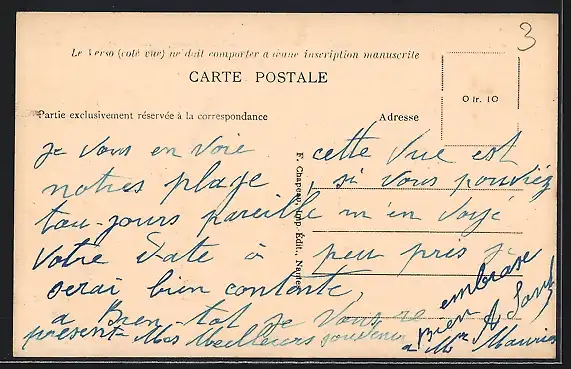 3
Le Verso (coté vue) ne doit comporter aucune inscription manuscrite
CARTE POSTALE
0 fr. 10
Partie exclusivement réservée à la correspondance
Adresse
F. Chapeau, Imp. Édit., Nantes
je vous en voie cette vue est
notres plage, si vous pouviez
tou-jours pareille m'en voyé
votre date à peu près je
serai bien contente,
a Bien-tot je vous re
présente Mes Meilleurs souvenir
embrase
Bien
a Mr Maurice